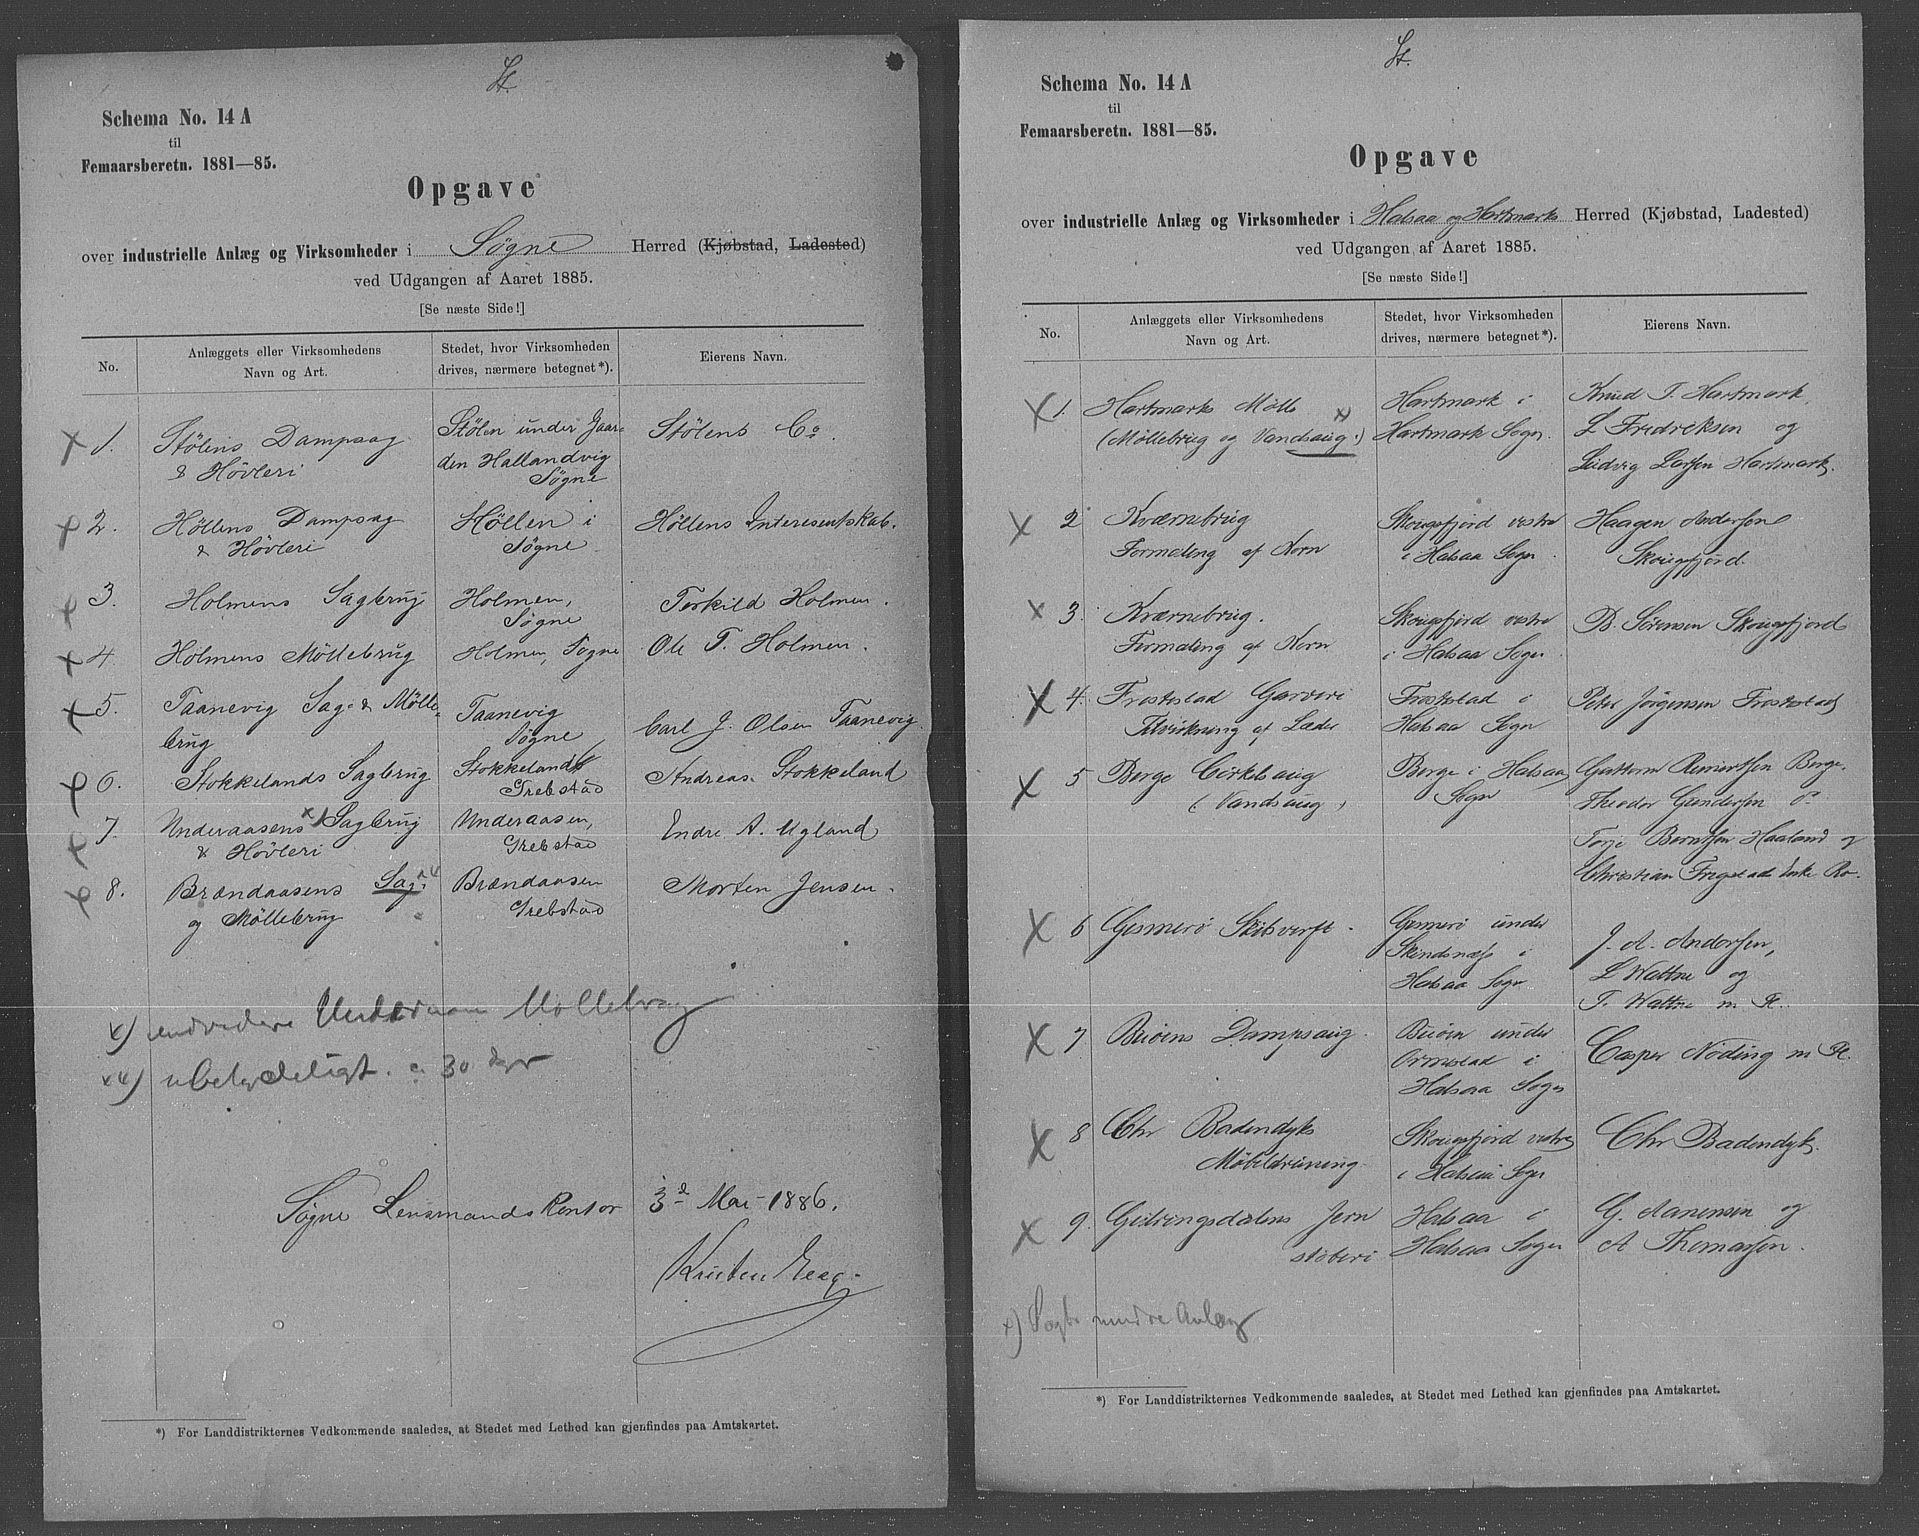 St.
Schema No. 14 A
til
Femaarsberetn. 1881—85.
Opgave
over industrielle Anlæg og Virksomheder i Søgne Herred (Kjøbstad, Ladested)
ved Udgangen af Aaret 1885.
[Se næste Side!]
No.
Anlæggets eller Virksomhedens
Navn og Art.
Stedet, hvor Virksomheden
drives, nærmere betegnet*).
Eierens Navn.
x 1. Stølens Dampsag Stølen under Gaar- Stølens Co.
& Høvleri den Hallandvig
Søgne
x 2. Høllens Dampsag Høllen i Høllens Interesentskab.
& Høvleri Søgne
x 3. Holmens Sagbrug Holmen, Terkild Holmen.
Søgne
x 4. Holmens Møllebrug Holmen, Søgne Ole T. Holmen.
x 5. Taanevig Sag- & Mølle- Taanevig Carl J. Olsen Taanevig.
brug Søgne
x 6. Stokkelands Sagbrug Stokkeland Andreas Stokkeland
Grebstad
x 7. Underaasens x) Sagbrug Underaasen, Endre A. Ugland
& Høvleri Grebstad
x 8. Brændaasens Sag- Brændaasen Morten Jensen.
og Møllebrug Grebstad
x) Møllebrug
ubetydeligt. 30
Søgne Lensmandskontor 3d Mai 1886.
*) For Landdistrikternes Vedkommende saaledes, at Stedet med Lethed kan gjenfindes paa Amtskartet.
St.
Schema No. 14 A
til
Femaarsberetn. 1881—85.
Opgave
over industrielle Anlæg og Virksomheder i Halsaa og Hartmarks Herred (Kjøbstad, Ladested)
ved Udgangen af Aaret 1885.
[Se næste Side!]
No.
Anlæggets eller Virksomhedens
Navn og Art.
Stedet, hvor Virksomheden
drives, nærmere betegnet*).
Eierens Navn.
x 1. Hartmarks Mølle x) Hartmark i Knud T. Hartmark,
(Møllebrug og Vandsaug.) Hartmark Sogn. L Fredriksen og
Ludvig Larsen Hartmark.
x 2 Kværnebrug Skougsfjord vestre Haagen Andersen
Formaling af Korn i Halsaa Sogn. Skougsfjord
x 3. Kværnebrug. Skougsfjord vestre B. Sørensen Skougsfjord
Formaling af Korn i Halsaa Sogn
x 4. Frostestad Garveri Frostestad i Peter Jörgensen Frostestad
Tilvirkning af Læder Halsaa Sogn
x 5 Berge Cirkelsaug Berge i Halsaa Guttorm Reinertsen Berge.
(Vandsaug) Sogn Theodor Gundersen
Torje Berntsen Haaland og
Christian Frigstads Enke
x 6 Gismerö Skibsverft. Gismerö under J. A. Andersen,
Skindsnæs i L Wattne og
Halsaa Sogn T. Wattne m. Fl.
x 7 Buöens Dampsaug. Buöen under Casper Nöding m Fl.
Ormestad i
Halsaa Sogn
x 8 Chr Badendyks Skougsfjord vestre Chr Badendyk.
i Halsaa Sogn
x 9. Jern Halsaa i G. Aanensen og
støberi Halsaa Sogn A Thomassen.
x) mindre Anlæg
*) For Landdistrikternes Vedkommende saaledes, at Stedet med Lethed kan gjenfindes paa Amtskartet.